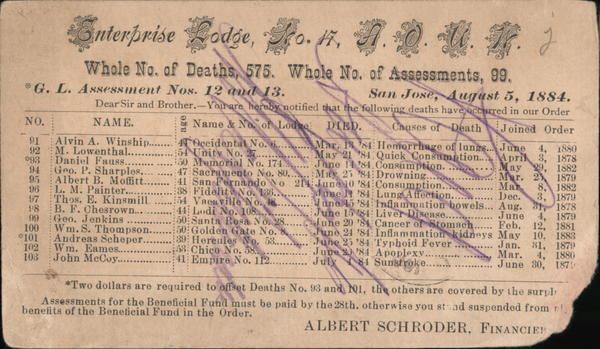 Enterprise Lodge, No. 17, A. O. U. W. 2
Whole No. of Deaths, 575. Whole No. of Assessments, 99.
*G. L. Assessment Nos. 12 and 13. San Jose, August 5, 1884.
Dear Sir and Brother.—You are hereby notified that the following deaths have occurred in our Order
NO. NAME. age Name & No. of Lodge DIED. Causes of Death Joined Order
91 Alvin A. Winship 44 Occidental No. 6 Mar. 13 '84 Hemorrhage of lungs June 4, 1880
92 M. Lowenthal 54 City No. May 21 '84 Quick Consumption April 3, 1878
*93 Daniel Fauss 50 Memorial No. 174 June 1 '84 Consumption May 29, 1882
94 Geo. P. Sharples 47 Sacramento No. 80 May 25 '84 Drowning Mar. 25, 1879
95 Albert B. Moffitt 41 San Fernando No 214 June 10 '84 Consumption Mar. 8, 1882
96 L. M. Painter 38 Fidelity No. 136 June '84 Lung Affection Dec. 9, 1879
97 Thos. E. Kinsmill 54 Vacaville No. June 15 '84 Inflammation bowels Aug. 31, 1878
98 B. F. Chesrown 44 Lodi No. 108 June 15 '84 Liver Disease June 4, 1879
99 Geo. Jenkins Santa Rosa No. 28 June 20 '84 Cancer of stomach Feb. 12, 1881
100 Wm. S. Thompson 50 Golden Gate No. June 24 '84 Inflammation kidneys May 10, 1883
*101 Andreas Scheper 39 Hercules No. 53 June 25 '84 Typhoid Fever Jan. 31, 1879
102 Wm. Eames 53 Chico No. 58 June '84 Apoplexy Mar. 4, 1880
103 John McCoy 41 Empire No. 112 July 1 '84 Sunstroke June 30, 187
*Two dollars are required to offset Deaths No. 93 and 101, the others are covered by the surpl
Assessments for the Beneficial Fund must be paid by the 28th, otherwise you stand suspended from
benefits of the Beneficial Fund in the Order.
ALBERT SCHRODER, FINANCIER